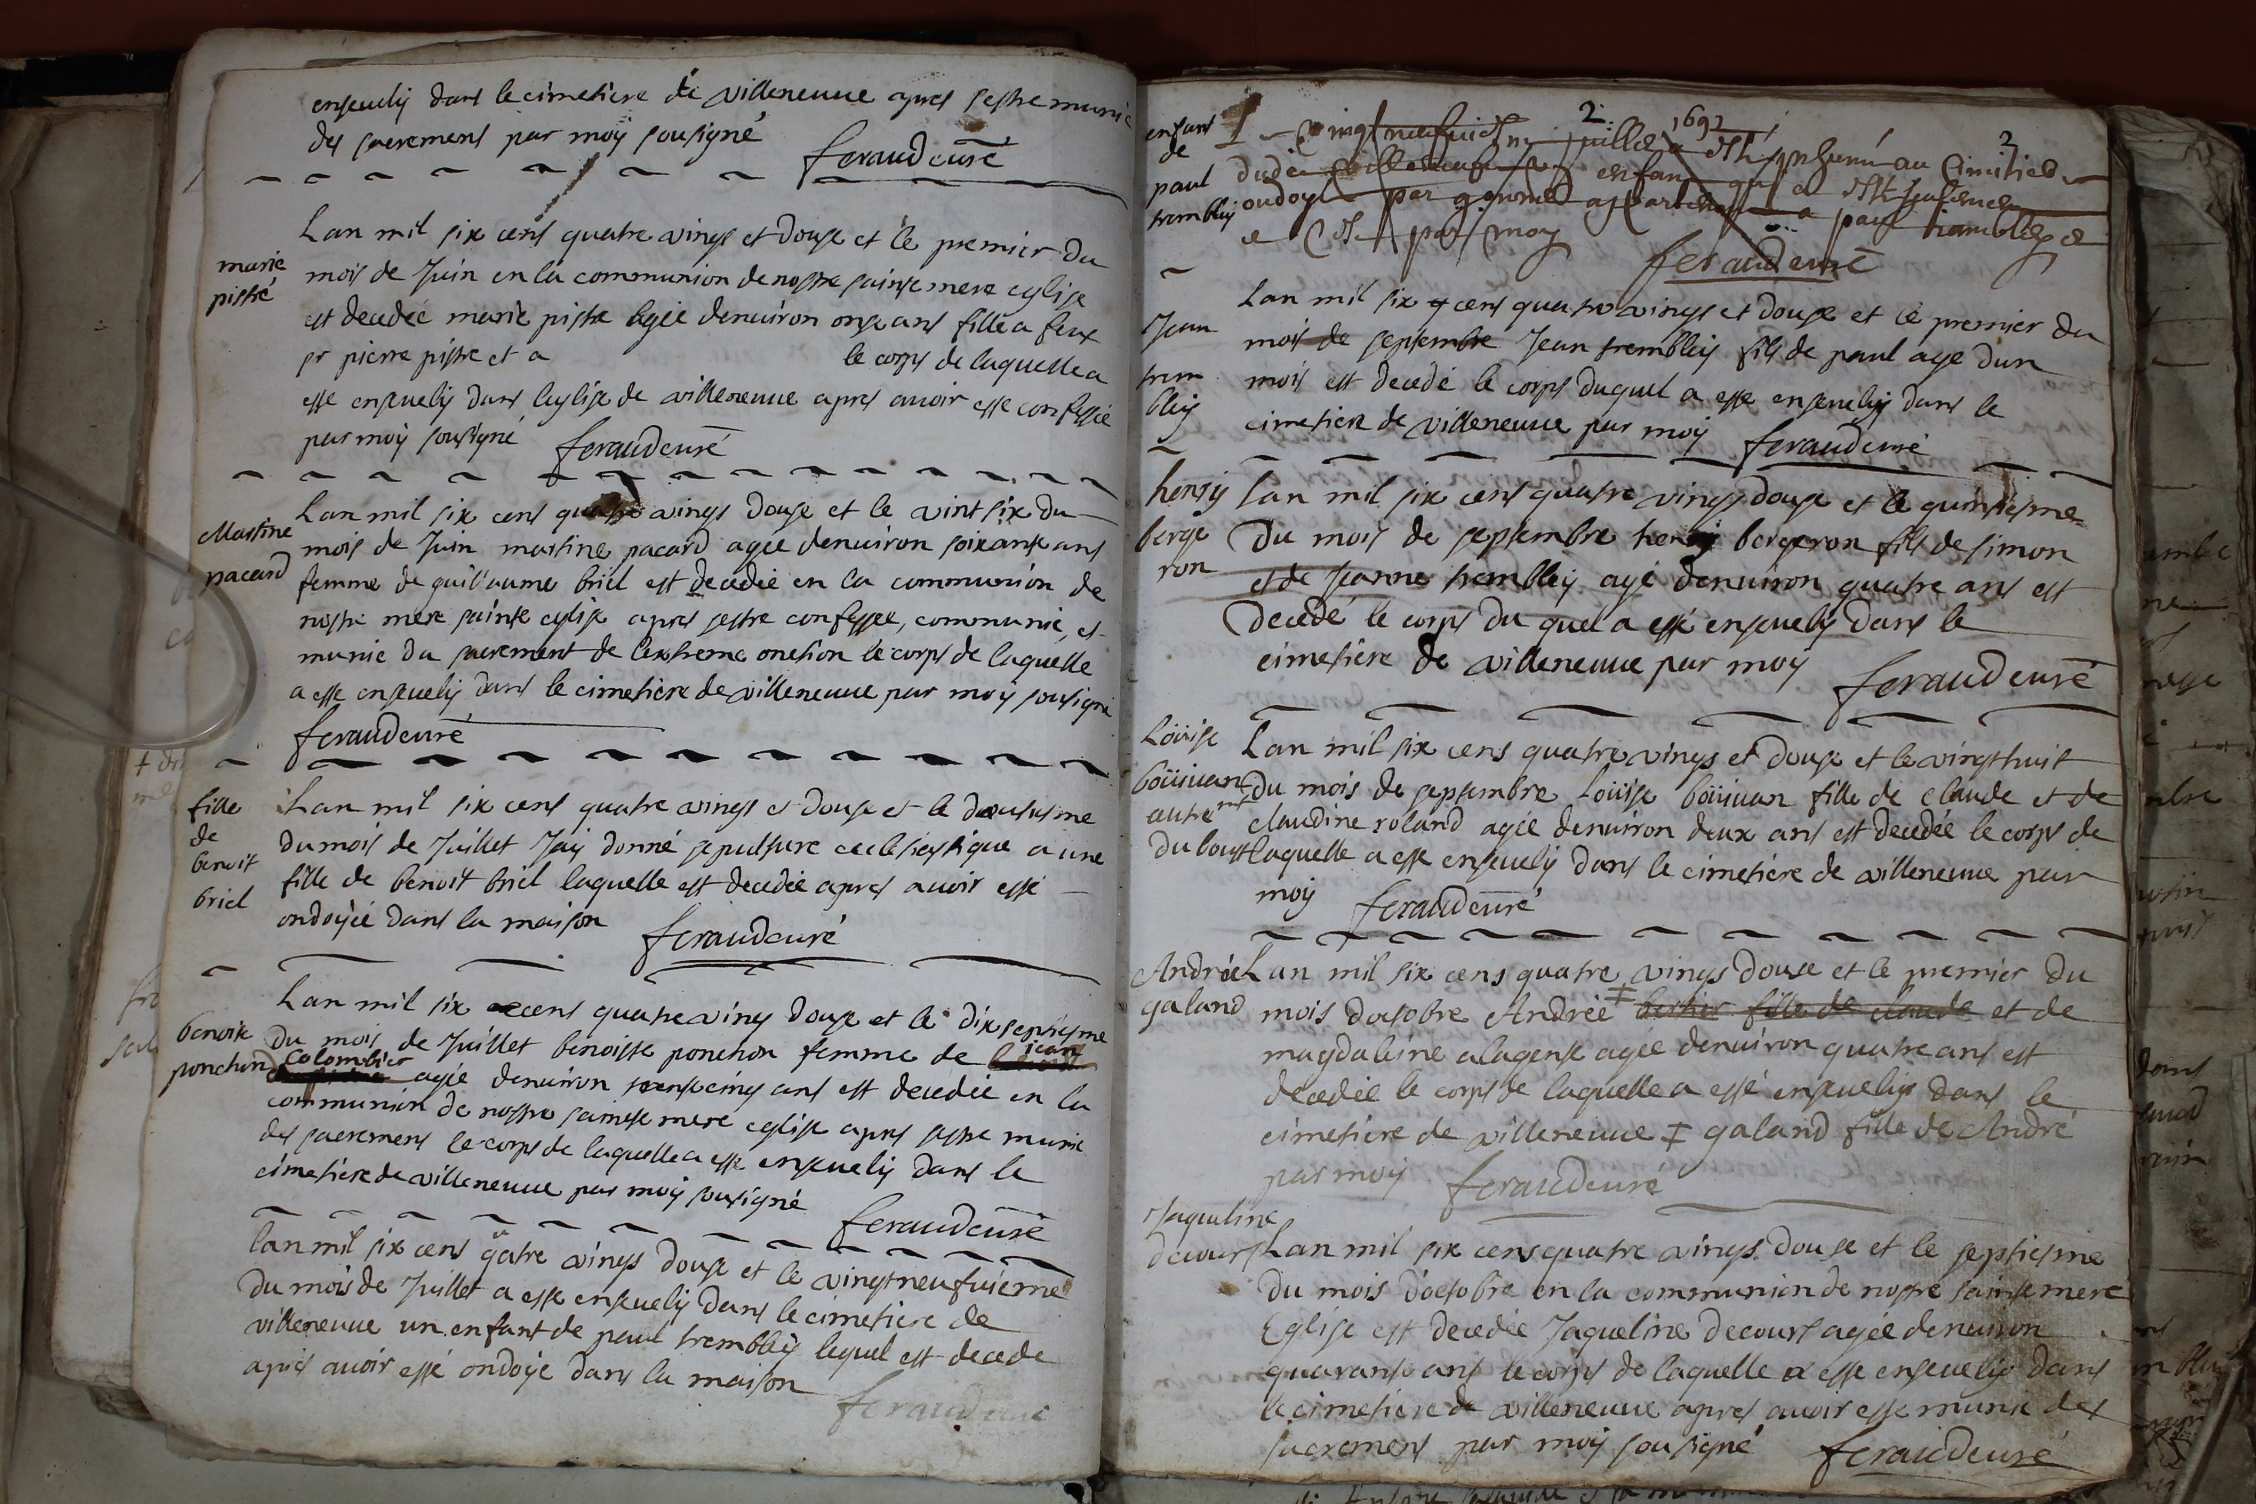 enseuely dans le cimetiere de villeneuue apres sestre munie
des sacremens par moÿ sousigné
feraud curé
marie
pistré
Lan mil six cens quatre vings et douse et le premier du
mois de Juin en la communion de nostre sainte mere eglise
est decedée marie pistre agée denuiron onze ans fille a feux
sr pierre pistre et a le corps de laquelle a
esté enseuely dans leglise de villeneuue apres auoir esté confessée
par moÿ sousigné feraud curé
Martine
pacard
Lan mil six cens quatre vings douse et le vint six du
mois de Juin martine pacard agée denuiron soixante ans
femme de guillaume briel est decedée en la communion de
nostre mere sainte eglise apres sestre confessee, communie, et
munie du sacrement de lextreme onction le corps de laquelle
a esté enseuely dans le cimetiere de villeneuue par moÿ sousigné
feraud curé
fille
de
benoit
briel
Lan mil six cens quatre vings et douse et le
du mois de Juillet Jaÿ donné sepulture ecclesiastique a une
fille de benoit briel laquelle est decedée apres auoir esté
ondoÿée dans la maison feraud curé
benoite
ponchon
Lan mil six cens quatre vings douse et le dix septiesme
du mois de Juillet benoiste ponchon femme de jean
Colombier agée denuiron trente cinq ans est decedée en la
communion de nostre sainte mere eglise apres sestre munie
des sacremens le corps de laquelle a esté enseuely dans le
cimetiere de villeneuue par moÿ sousigné
feraud curé
lan mil six cens qatre vings douse et le vingt neufuieme
du mois de Juillet a esté enseuely dans le cimetiere de
villeneuue un enfant de paul trembleÿ lequel est decede
apres auoir esté ondoÿé dans la maison
feraud curé
2. 1692 2
enfant
de
paul
trembleÿ
vingt neufuiesme juillet a esté inhumé au Cimitiere
dudit villeneufue enfant qui a esté
ondoyé par appartenant a paul trambley
a esté par moy
feraud curé
Jean
trem
bleÿ
Lan mil six cens quatre vings et douse et le premier du
mois de septembre Jean trembleÿ fils de paul age dun
mois est decedé le corps duquel a esté enseuely dans le
cimetiere de villeneuue par moÿ feraud curé
henry
berge
ron
Lan mil six cens quatre vings douse et le quinsiesme
du mois de septembre henrÿ bergeron fils de simon
et de Jeanne trembleÿ agé denuiron quatre ans est
decedé le corps du quel a esté enseuely dans le
cimetiere de villeneuue par moÿ feraud curé
Loüise
boüiuan
autremt
du bout
Lan mil six cens quatre vings et douse et le vingt huit
du mois de septembre Loüise boüiuan fille de claude et de
claudine roland agée denuiron deux ans est decedée le corps de
laquelle a esté enseuely dans le cimetiere de villeneuue par
moÿ feraud curé
Andrée
galand
Lan mil six cens quatre vings douse et le premier du
mois doctobre Andrée ‡ bertier fille de claude et de
magdaleine alagente agée denuiron quatre ans est
decedée le corps de laquelle a esté enseuely dans le
cimetiere de villeneuue ‡ galand fille de André
par moÿ feraud curé
Jaqueline
decours
Lan mil six cens quatre vings douse et le septiesme
du mois doctobre en la communion de nostre sainte mere
Eglise est decedée Jaqueline decours agée denuiron
quarante ans le corps de laquelle a esté enseuely dans
le cimetiere de villeneuue apres auoir esté munie des
sacremens par moÿ sousigné feraud curé